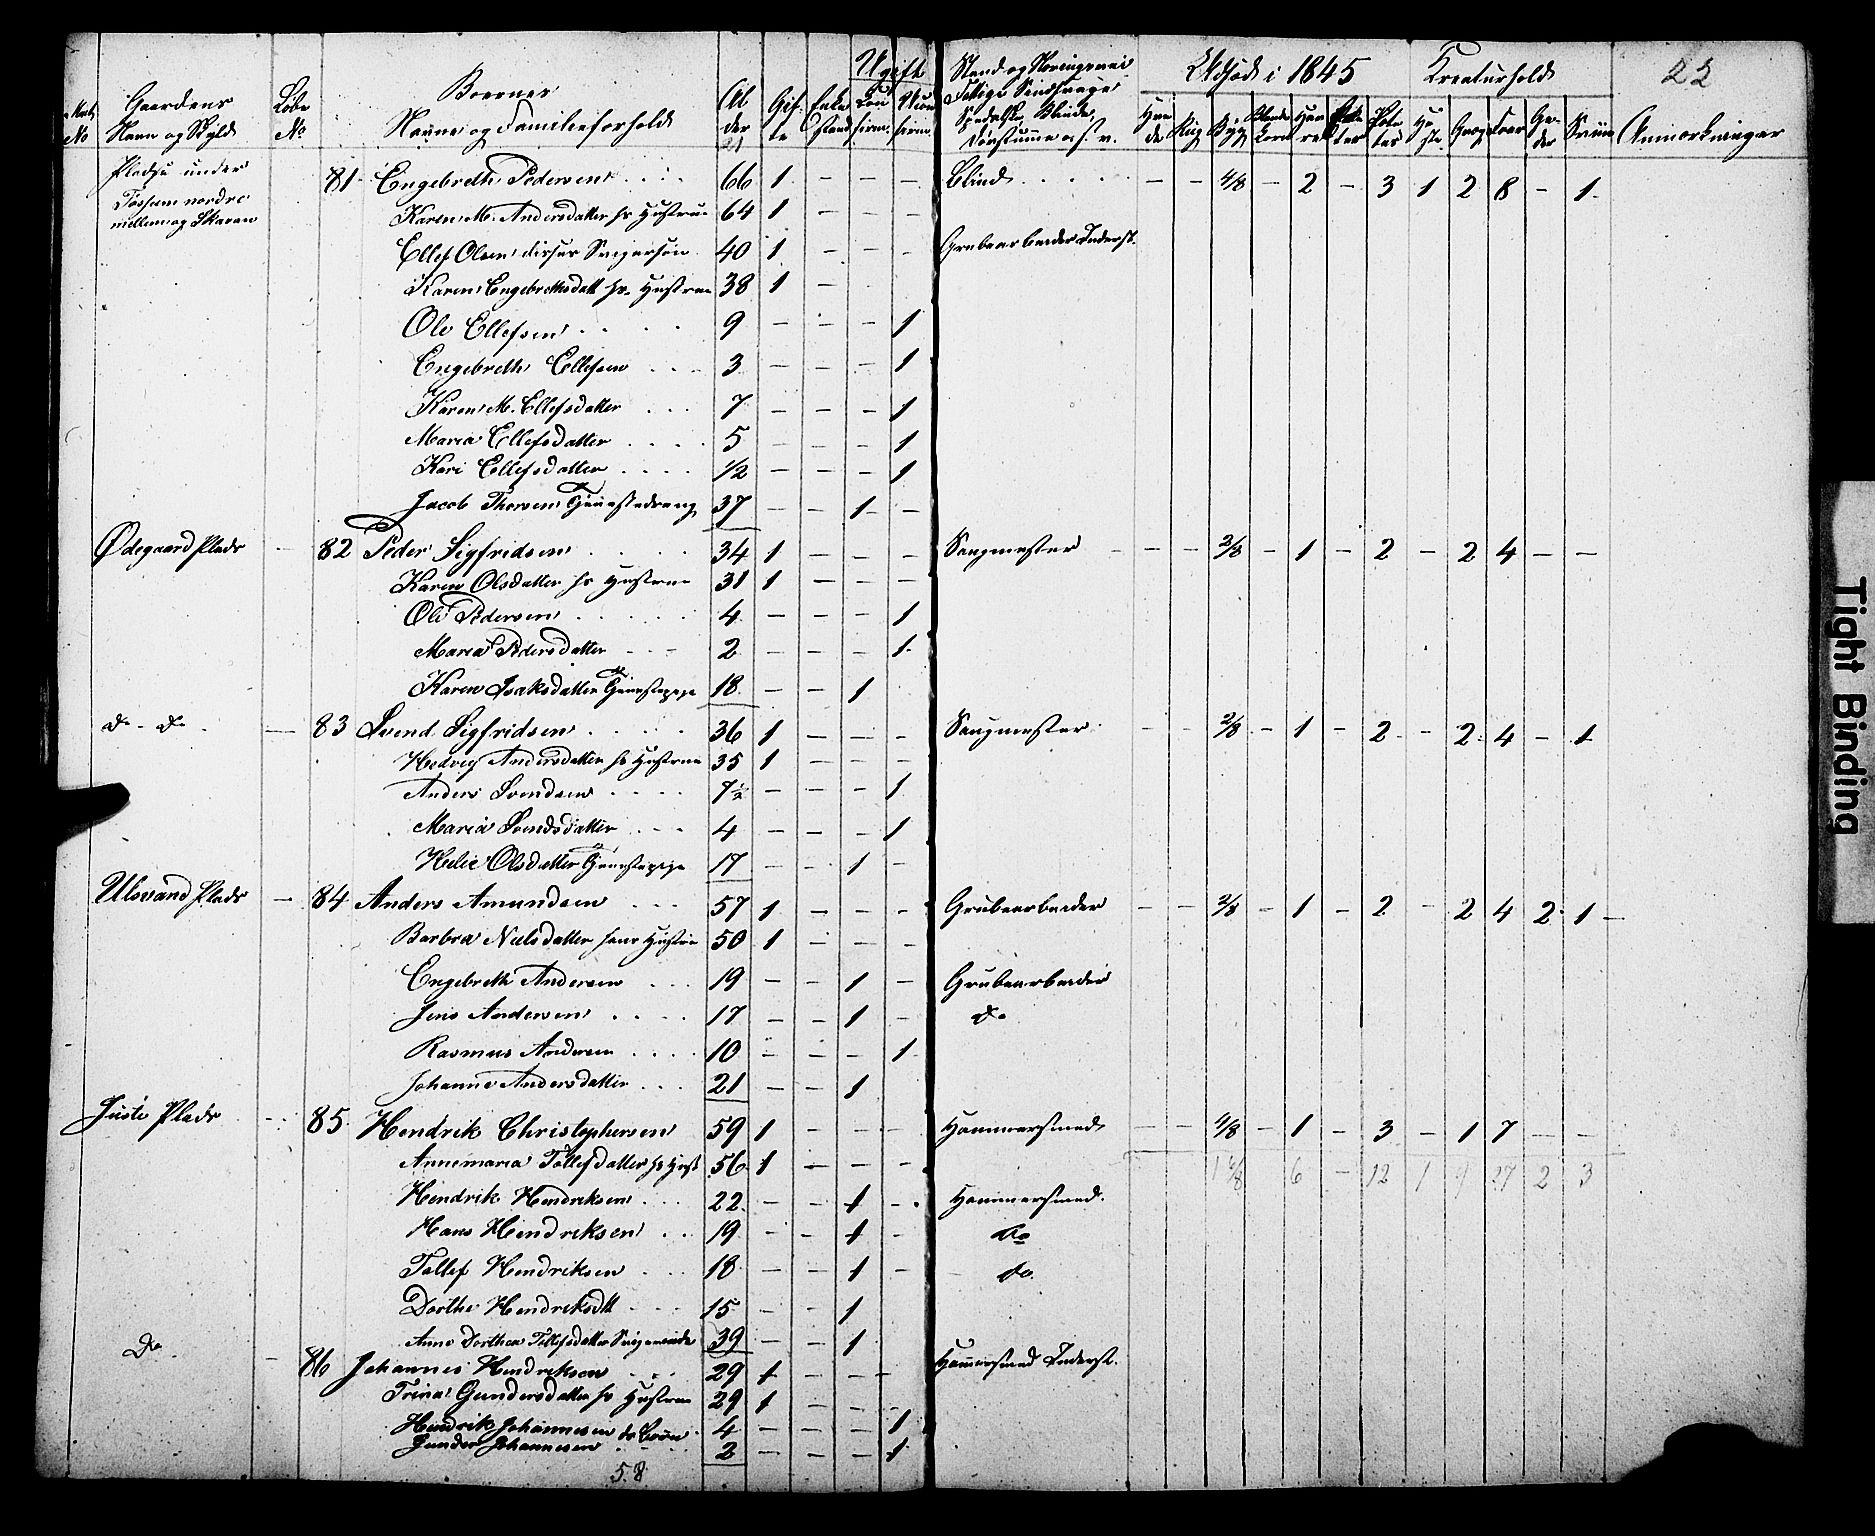 Ugift
Matr No
Gaardens Navn og Skyld
Løbe No
Beboernes Navne og Familieforhold
Alder
Gifte
Enkestand
Kon firm.
Ukonfirm.
Stand og Næringsvei
Blinde
Døvstumme o. s. v.
Udsæd i 1845
Kreaturhold
22
Hvede
Rug
Byg
Blandkorn
Havre
Erter
Potetes
Heste
Qvæg
Faar
Geder
Sviin
Anmærkninger
Pladse under Fossum nordre mellem og Skaren
81 Engebreth Pedersen 66 1 - - - Blind - - 4/8 - 2 - 3 1 2 8 - 1
Karen M. Andersdatter hs Hustrue 64 1 - - -
Ellef Olsen disses Svigersøn 40 1 - - Grubearbeider Inderst.
Karen Engebrethsdatt hs Hustrue 38 1 -
Ole Ellefsen 9 - - - 1
Engebreth Ellefsen 3 - - - 1
Karen M. Ellefsdatter 7 - - - 1
Maria Ellefsdatter 5 - - - 1
Kari Ellefsdatter 1/2 - - - 1
Jacob Thorsen Tjenestedreng 37 - - 1 -
Ødegaard Plads - 82 Peder Sigfridsen 34 1 - - - Saugmester - - - 3/8 - 1 - 2 - 2 4 - -
Karen Olsdatter hs Hustrue 31 1 - - -
Ole Pedersen 4 - - - 1
Maria Pedersdatter 2 - - - 1
Karen Isaksdatter Tjenestepige 18 - - 1
do - do - 83 Svend Sigfridsen 36 1 - - - Saugmester - - 2/8 - 1 - 2 - 2 4 - 1
Hedvig Andersdatter hs Hustrue 35 1 - - -
Anders Svendsen 7 1/2 - - - 1
Maria Svendsdatter 4 - - - 1
Helie Olsdatter Tjenestepige 17 - - 1 -
Ulsvand Plads - 84 Anders Amundsen 57 1 - - - Grubearbeider - - 3/8 - 1 - 2 - 2 4 2 1 -
Barbra Nielsdatter hans Hustrue 50 1 - - -
Engebreth Andersen 19 - - 1 - Grubearbeider
Jens Andersen 17 - - 1 - do
Rasmus Andersen 10 - - - 1
Johanne Andersdatter 21 - - 1
Juste Plads - 85 Hendrik Christophersen 59 1 - - - Hammersmed - - 4/8 - 1 - 3 - 1 7 - -
Annemaria Tollefsdatter hs Hust 56 1 - - - 1 6/8 6 - 12 1 9 27 2 3
Hendrik Hendriksen 22 - - 1 - Hammersmed.
Hans Hendriksen 19 - - 1 - do
Tollef Hendriksen 18 - - 1 - do.
Dorthe Hendriksdtt 15 - - 1
Anne Dorthea Tollefsdatter 39 - - 1
Do - 86 Johannes Hendriksen 29 1 - - - Hammersmed Inderst.
Trine Gundersdatter hs Hustrue 29 1 - - -
Hendrik Johannesen 4 - - - 1
Gunder Johannesen 2 - - - 1
58
Tight Binding